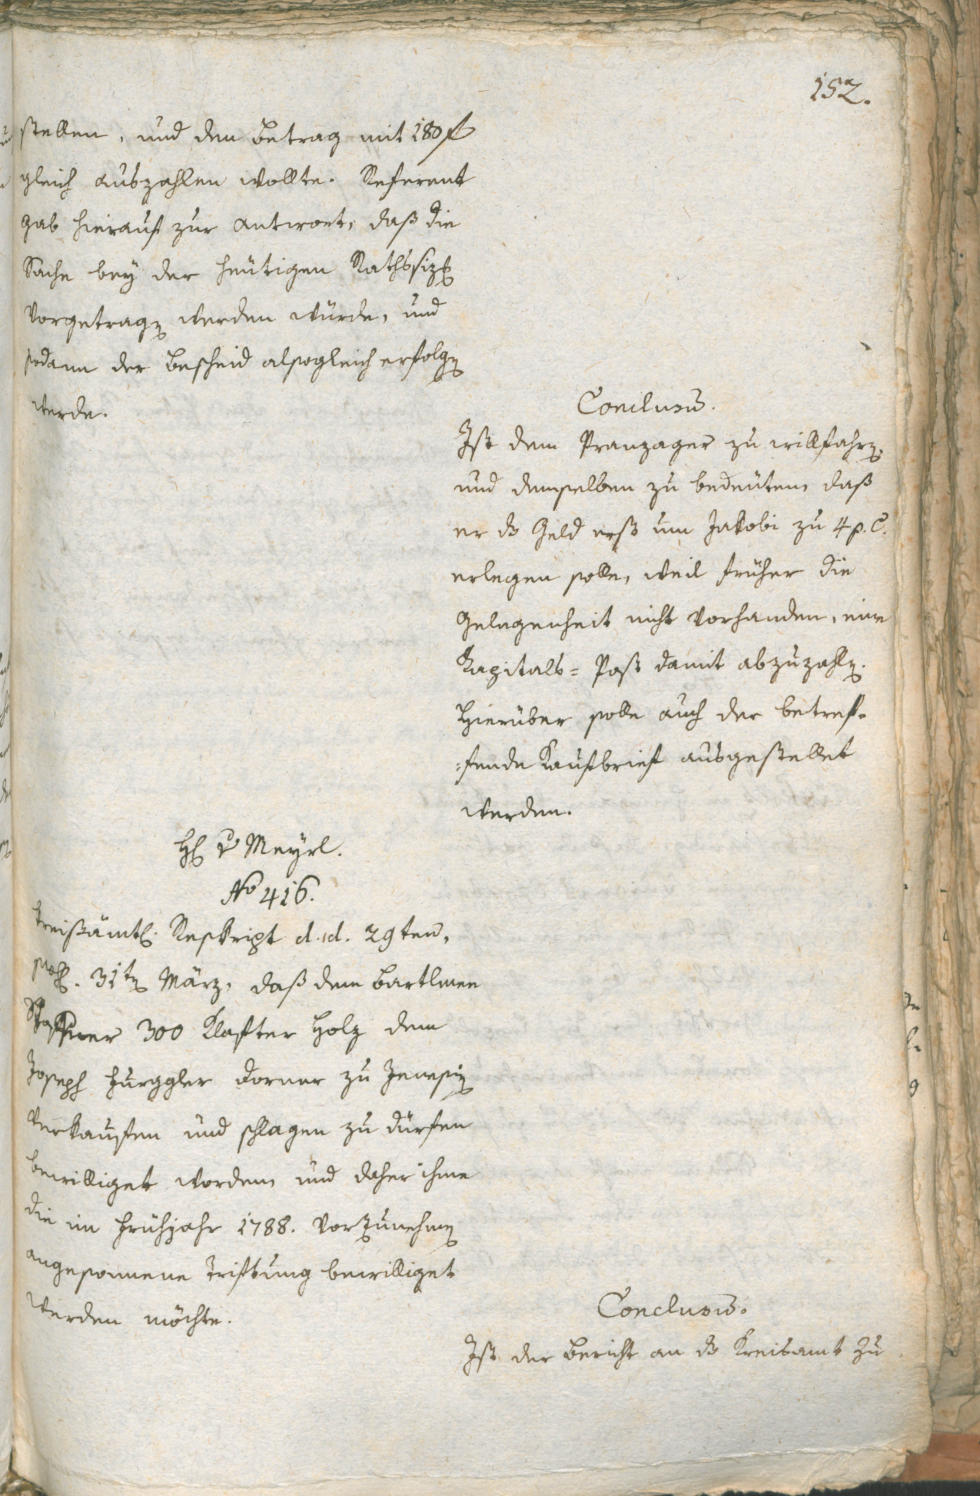 152.
stellen, und den Betrag mit 180 f
gleich auszahlen wollte. Referent
gab hierauf zur Antwort, daß die
Sache bey der heutigen Rathssiz
vorgetrag werden würde, und
sodann der Bescheid alsogleich erfolg
werde.
Conclusū.
Ist dem Pranzager zu willfahr,
und demselben zu bedeuten, daß
er ds Geld erst um Jakobi zu 4 p. C.
erlegen solle, weil früher die
Gelegenheit nicht vorhanden, eine
Kapitals= Post damit abzuzahl.
Hierüber solle auch der betref=
=fende Kaufbrief ausgestellet
werden.
H v Meyrl.
No 416.
Kreisämtl. Reskript d. d. 29ten,
31t März, daß dem Bartlmee
300 Klafter Holz dem
Joseph Zurggler Dorner zu Jenesi
verkaufen und schlagen zu dürfen
bewilliget worden, und daher ihme
die im Frühjahr 1788. vorzunehm
angesonnene Triftung bewilliget
werden möchte.
Conclusū.
Ist der Bericht an ds Kreisamt zu